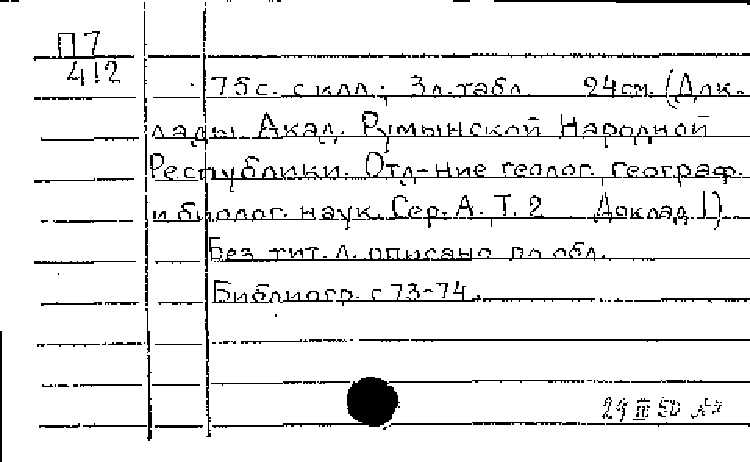 П7
412
75с. с илл.; 3л. табл. 24см. (Док-
лады Акад. Румынской Народной
Республики. Отд-ние геолог. географ.
и биолог. наук. Сер. А. Т. 2 Доклад 1)
Без тит. л. описано по обл.
Библиогр. с 73-74.
29 III 50